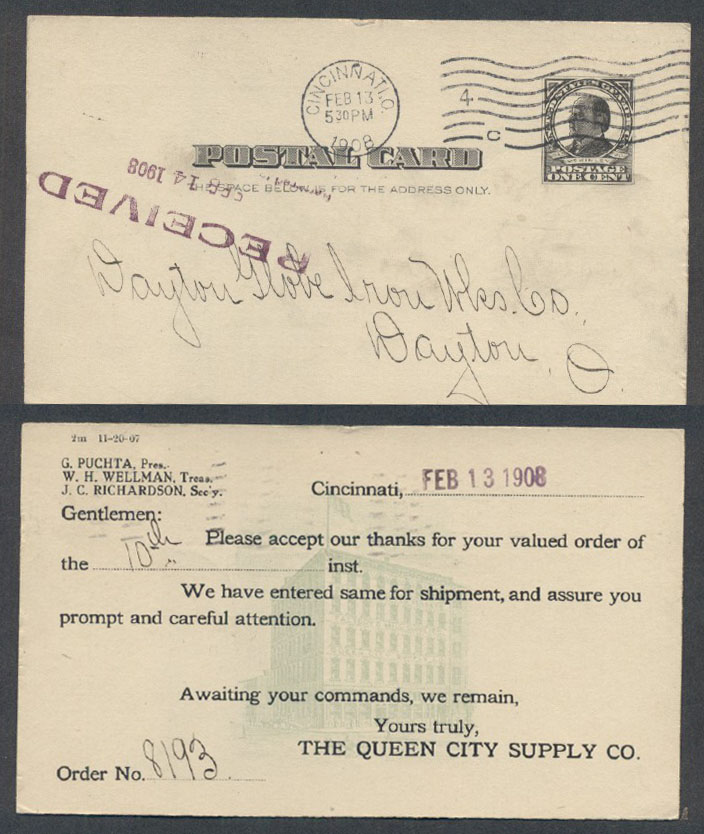 CINCINNATI, O.
FEB 13
5 30 PM
1908
4
C
POSTAGE
ONE CENT
POSTAL CARD
THE SPACE BELOW IS FOR THE ADDRESS ONLY.
RECEIVED
FEB 14 1908
Dayton Globe Iron Wks. Co.,
Dayton, O.
2m 11-20-07
G. PUCHTA, Pres.
W. H. WELLMAN, Treas.
J. C. RICHARDSON, Sec'y.
Cincinnati, FEB 13 1908
Gentlemen:
Please accept our thanks for your valued order of
the 10th inst.
We have entered same for shipment, and assure you
prompt and careful attention.
Awaiting your commands, we remain,
Yours truly,
THE QUEEN CITY SUPPLY CO.
Order No. 8193